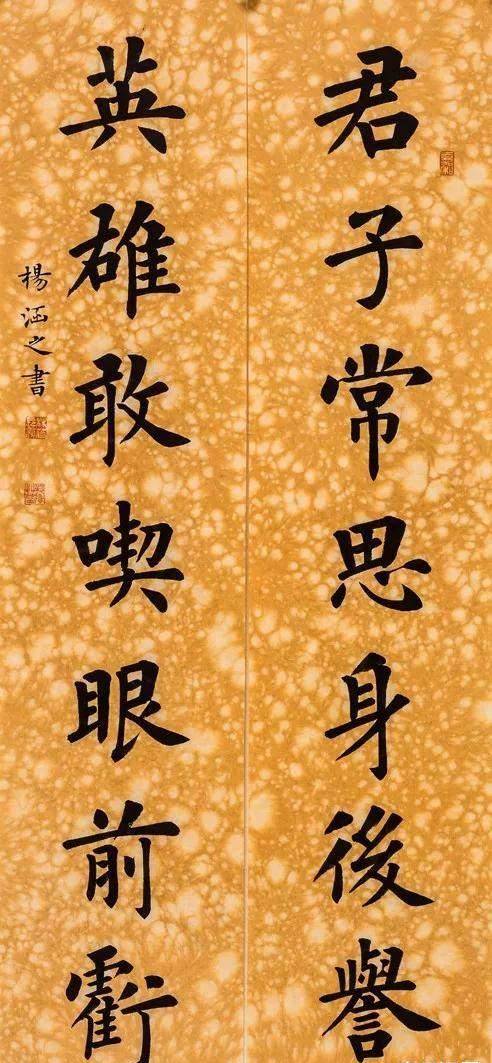 君子常思身後譽
英雄敢喫眼前虧
楊涵之書